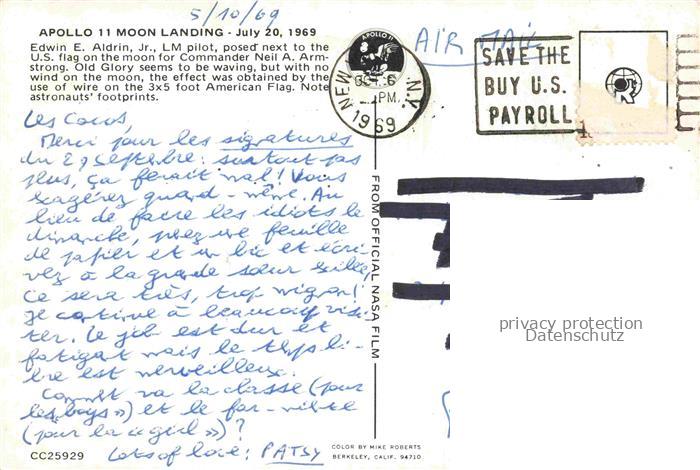 5/10/69
APOLLO 11 MOON LANDING - July 20, 1969
Edwin E. Aldrin, Jr., LM pilot, posed next to the
U.S. flag on the moon for Commander Neil A. Arm-
strong. Old Glory seems to be waving, but with no
wind on the moon, the effect was obtained by the
use of wire on the 3x5 foot American Flag. Note
astronauts' footprints.
AIR MAIL
APOLLO 11
NEW N.Y.
OCT 6
PM
1969
SAVE THE
BUY U.S.
PAYROLL
Les Cocos,
Merci pour les signatures
du 29 septembre: surtout pas
plus, ça ferait mal! Vous
exagérez quand-même. Au
lieu de faire les idiots le
dimanche, prenez une feuille
de papier et un bic et écri-
vez à la grande sœur exilée,
ce sera très, trop mignon!
Je continue à beaucoup visi-
ter. Le job est dur et
fatigant mais le temps li-
bre est merveilleux.
Comment va la classe (pour
les "boys") et le
(pour la "girl")?
Lots of love: PATSY
FROM OFFICIAL NASA FILM
privacy protection
Datenschutz
CC25929
COLOR BY MIKE ROBERTS
BERKELEY, CALIF. 94710